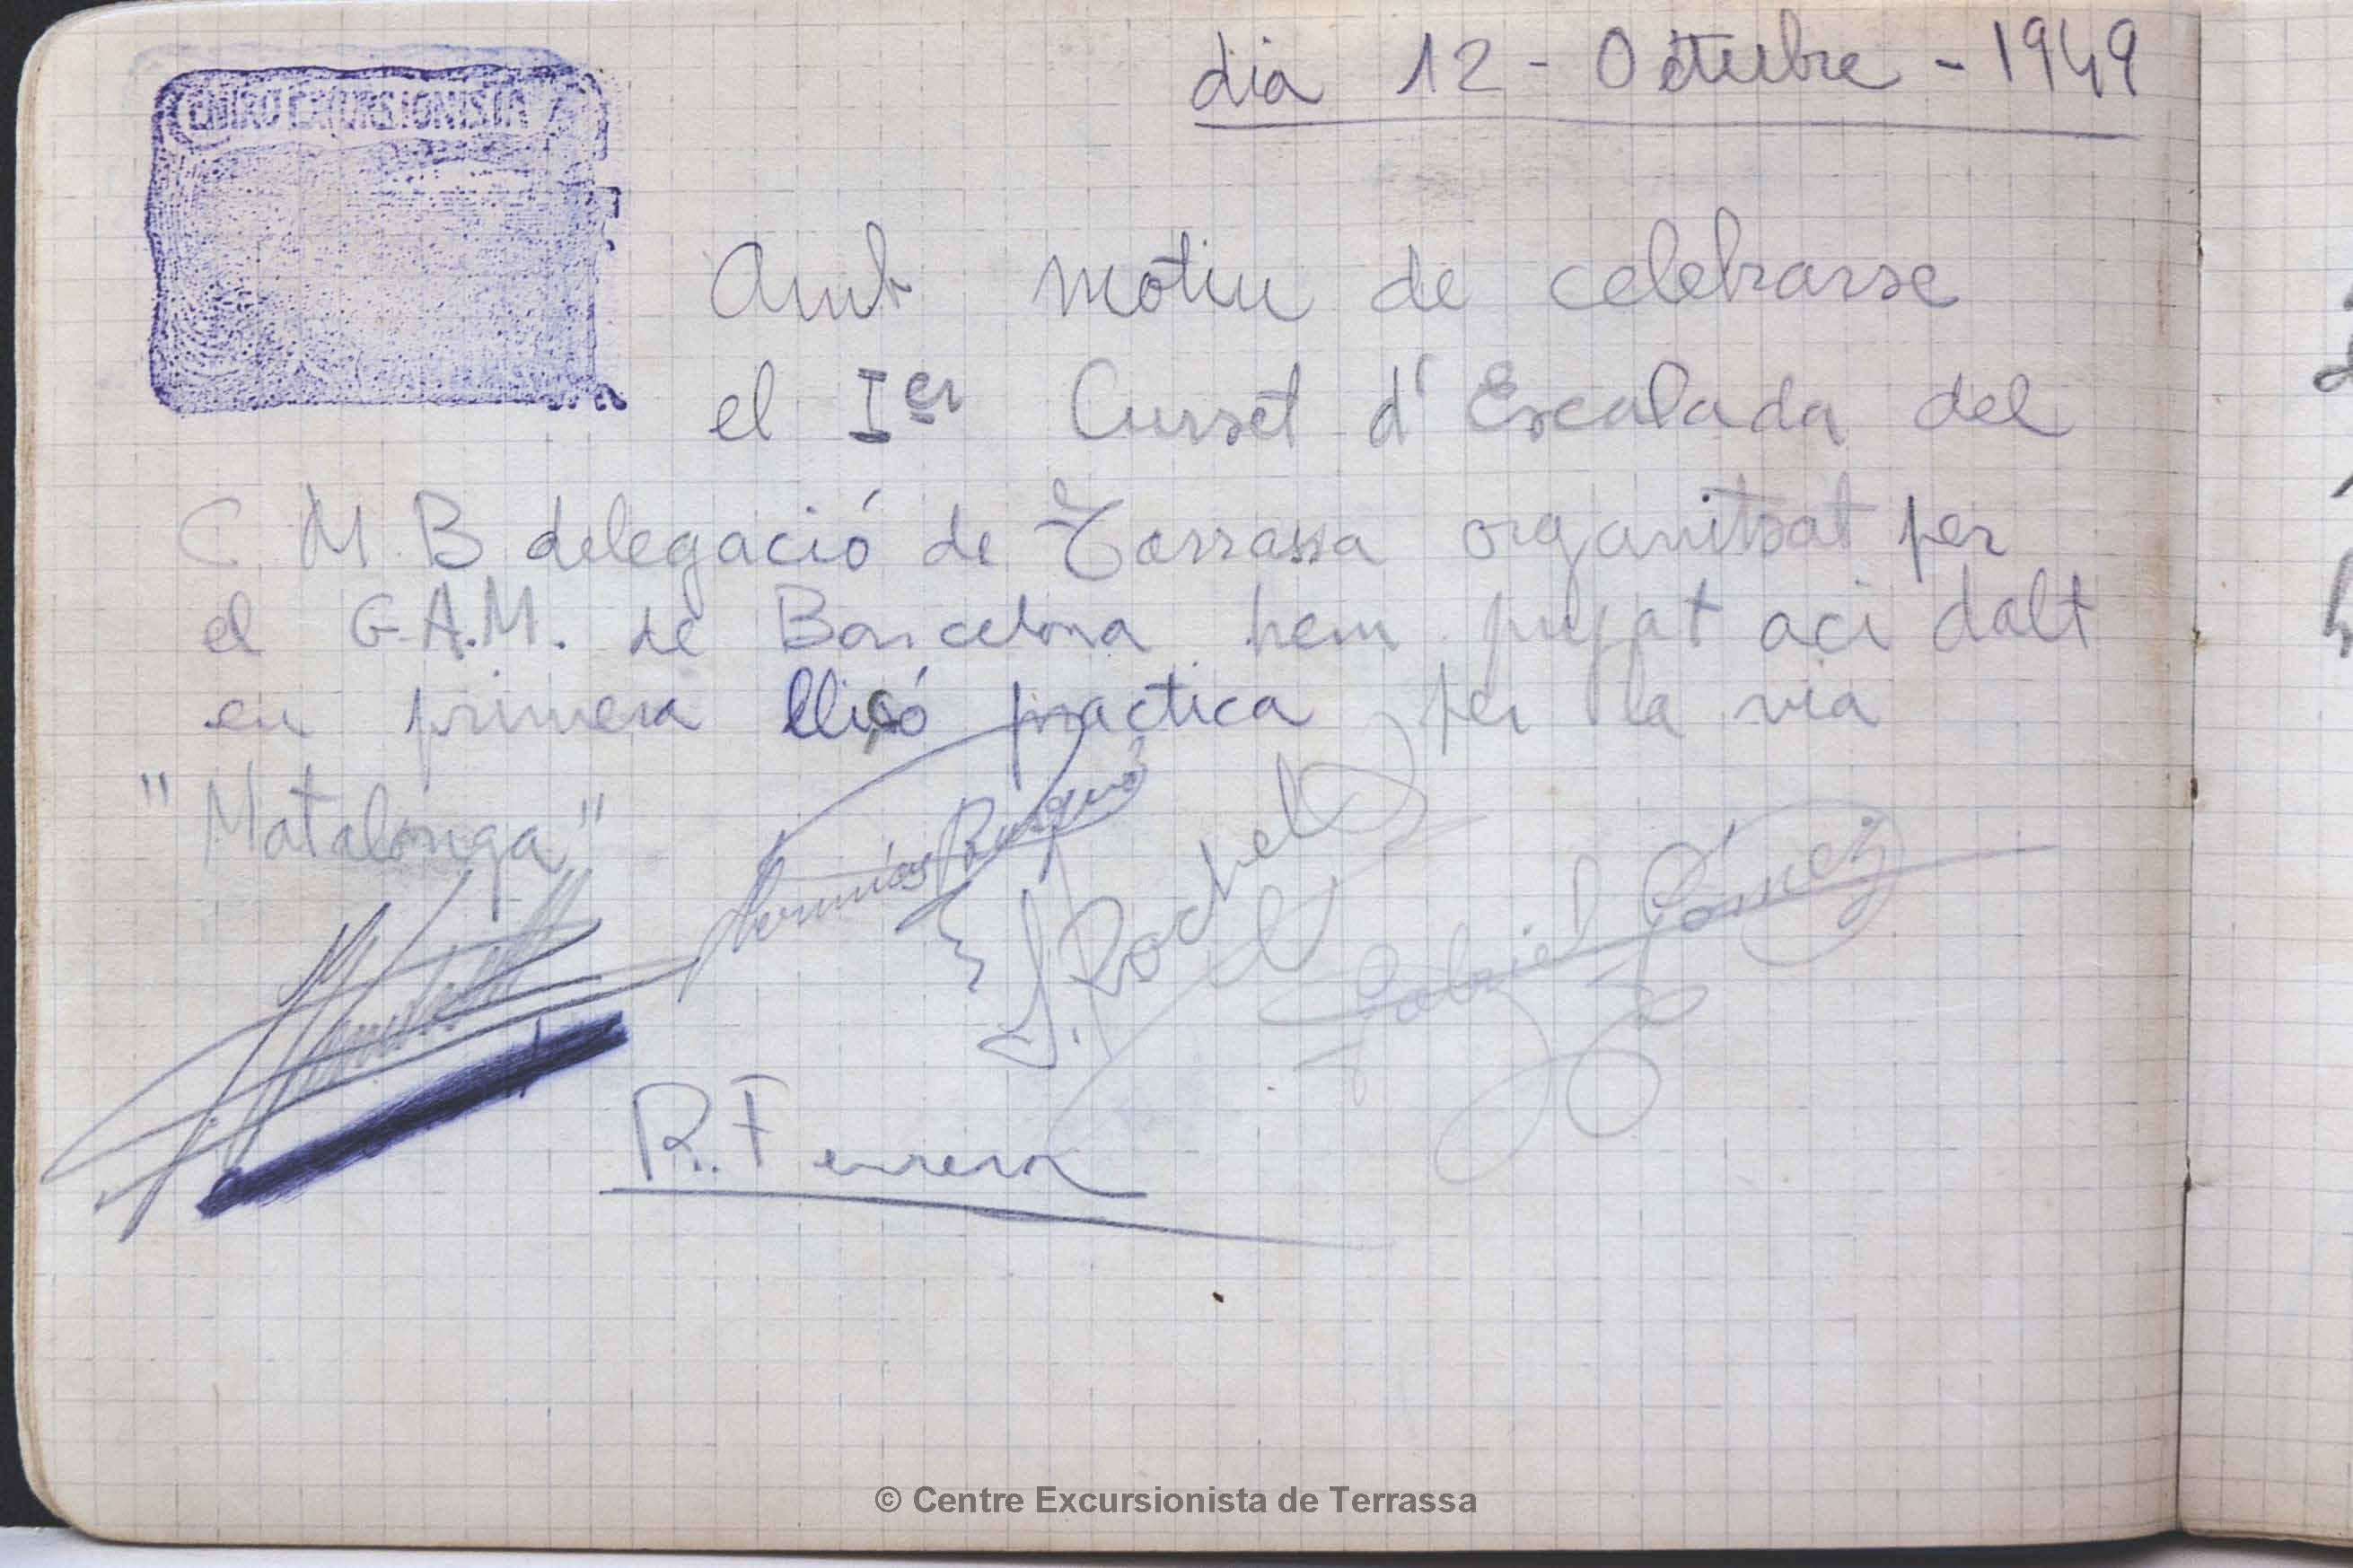 CENTRO EXCURSIONISTA
dia 12 - Octubre - 1949
Amb motiu de celebrarse
el Ier Curset d'Escalada del
C M B delegació de Tarrassa organitzat per
el G.A.M. de Barcelona hem pujat aci dalt
en primera lliçó practica per la via
"Matalonga"
J. Rochet
Gabriel Gómez
R. Ferrera
© Centre Excursionista de Terrassa